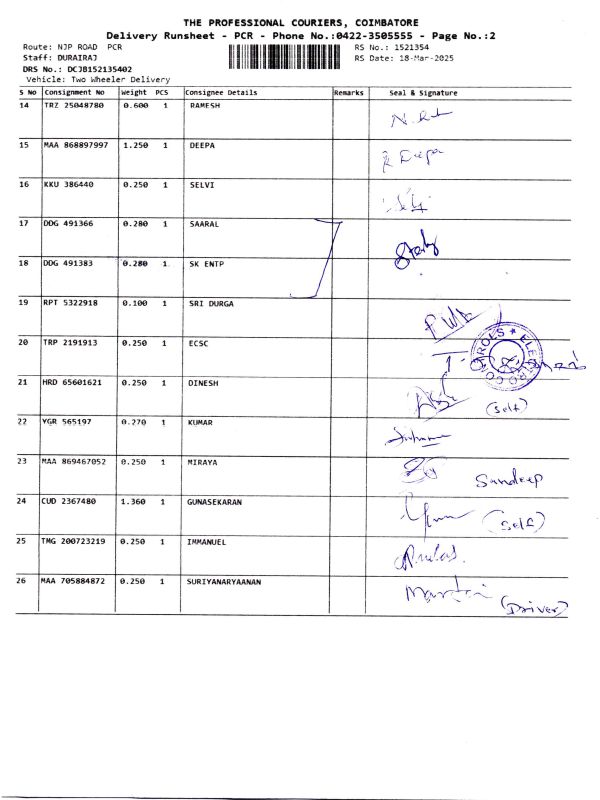 THE PROFESSIONAL COURIERS, COIMBATORE
Delivery Runsheet - PCR - Phone No.:0422-3505555 - Page No.:2
Route: NJP ROAD PCR RS No.: 1521354
Staff: DURAIRAJ RS Date: 18-Mar-2025
DRS No.: DCJB152135402
Vehicle: Two Wheeler Delivery
S No Consignment No Weight PCS Consignee Details Remarks Seal & Signature
14 TRZ 25048780 0.600 1 RAMESH
15 MAA 868897997 1.250 1 DEEPA
Deepa
16 KKU 386440 0.250 1 SELVI
17 DDG 491366 0.280 1 SAARAL
18 DDG 491383 0.280 1 SK ENTP
19 RPT 5322918 0.100 1 SRI DURGA
20 TRP 2191913 0.250 1 ECSC
ELECTRO CONTROLS
21 HRD 65601621 0.250 1 DINESH
(self)
22 YGR 565197 0.270 1 KUMAR
23 MAA 869467052 0.250 1 MIRAYA
Sandeep
24 CUD 2367480 1.360 1 GUNASEKARAN
(self)
25 TMG 200723219 0.250 1 IMMANUEL
26 MAA 705884872 0.250 1 SURIYANARYAANAN
(Driver)